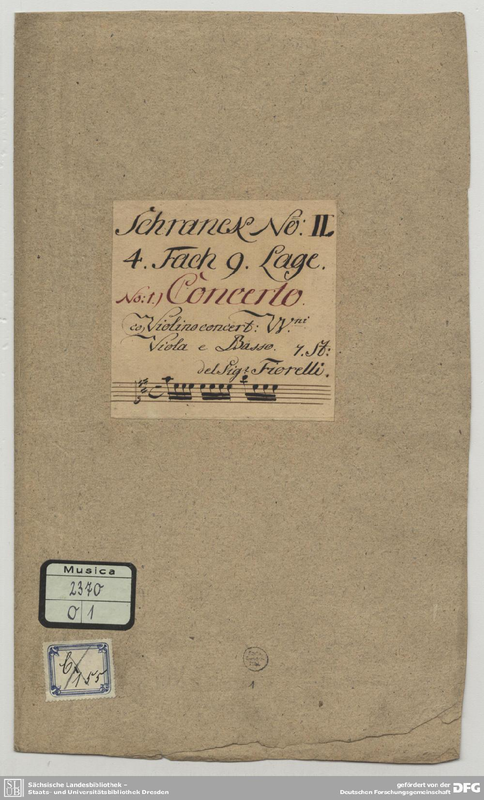 Schranck No: II.
4. Fach 9. Lage.
No: 1.) Concerto.
co Violino concert: VV.ni
Viola e Basso. 7. St:
del Sigr. Fiorelli.
Musica
2370
O 1
155
1
SLUB
Sächsische Landesbibliothek –
Staats- und Universitätsbibliothek Dresden
gefördert von der
Deutschen Forschungsgemeinschaft DFG